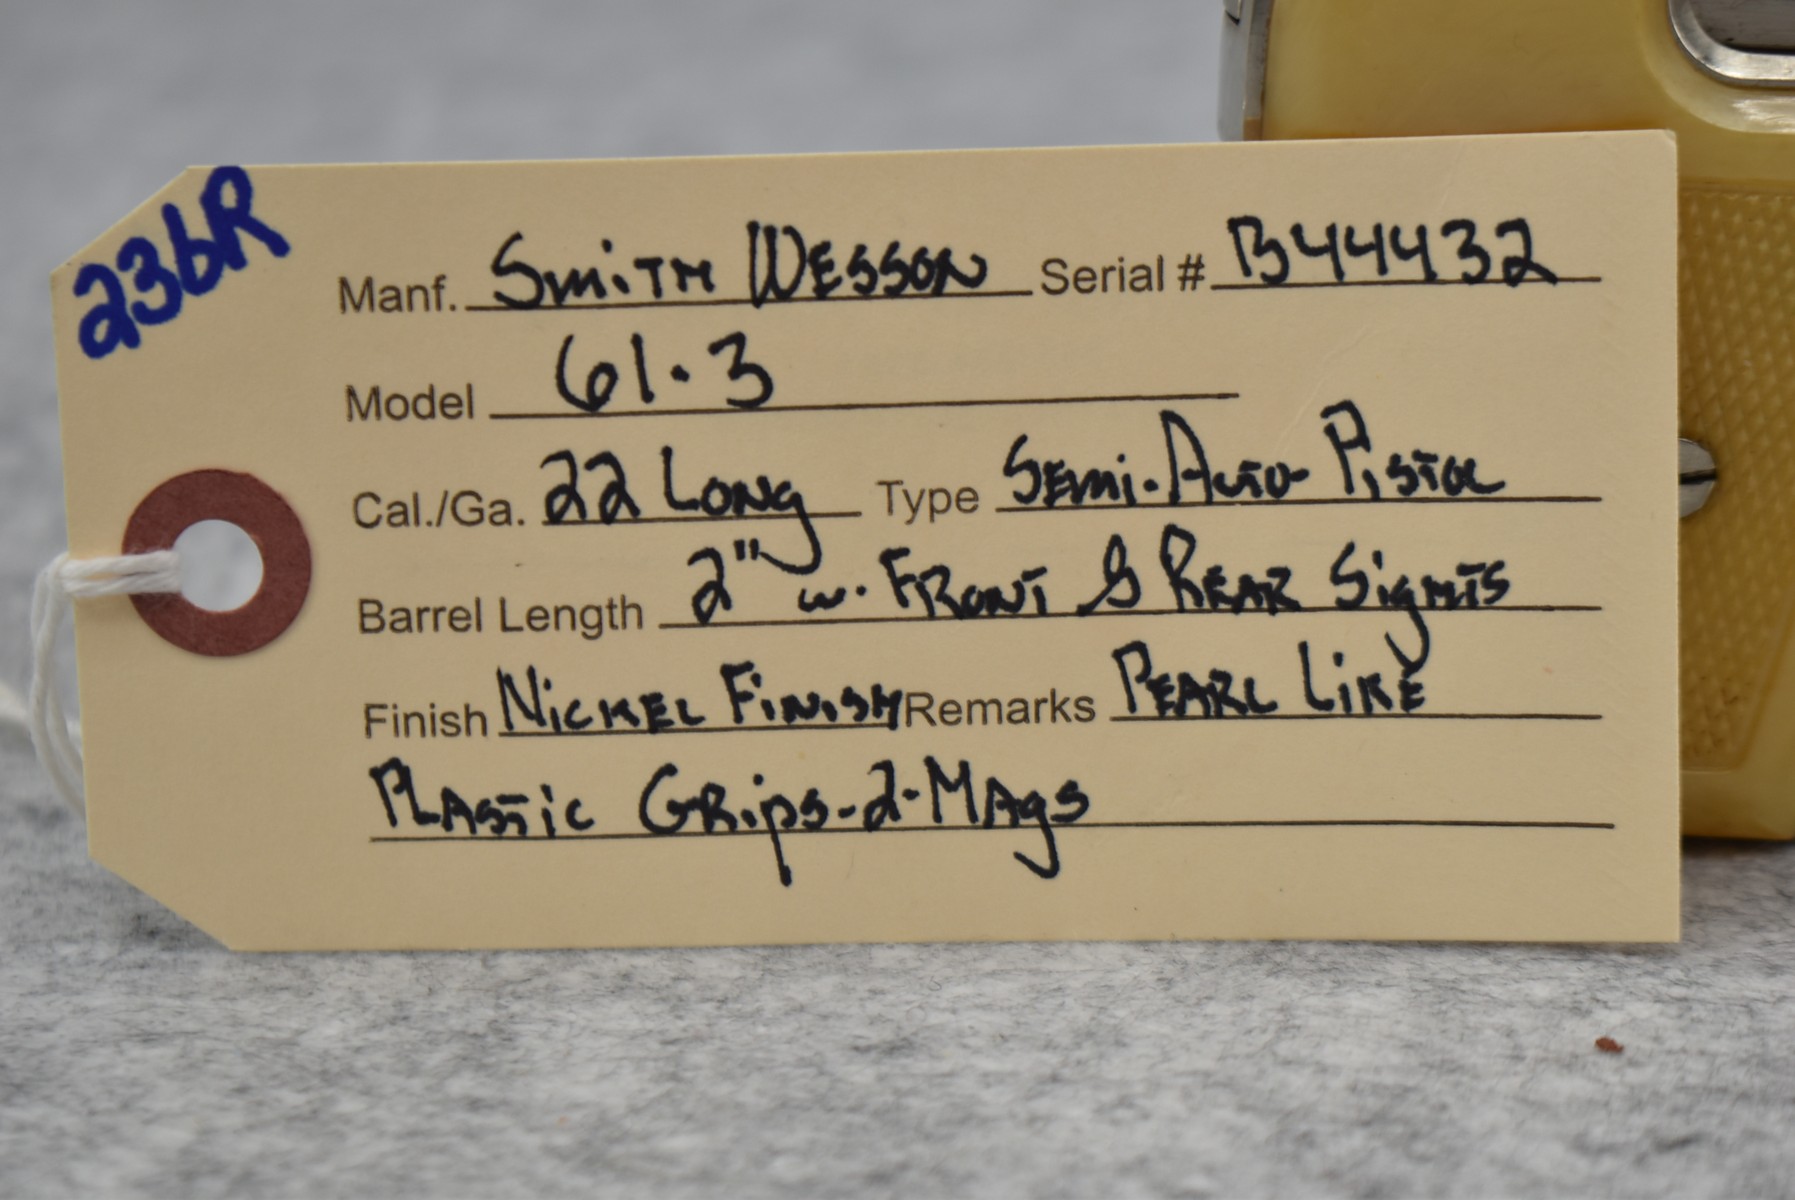 236R
Manf. Smith Wesson Serial # B44432
Model 61.3
Cal./Ga. 22 Long Type Semi-Auto-Pistol
Barrel Length 2" w. Front & Rear Sights
Finish Nickel Finish Remarks Pearl Like
Plastic Grips-2-Mags